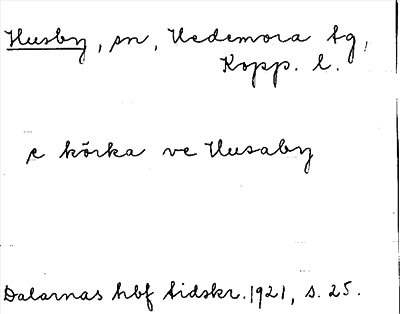 Husby, sn, Hedemora tg,
Kopp. l.
e körka ve Husaby
Dalarnas hbf tidskr. 1921, s. 25.